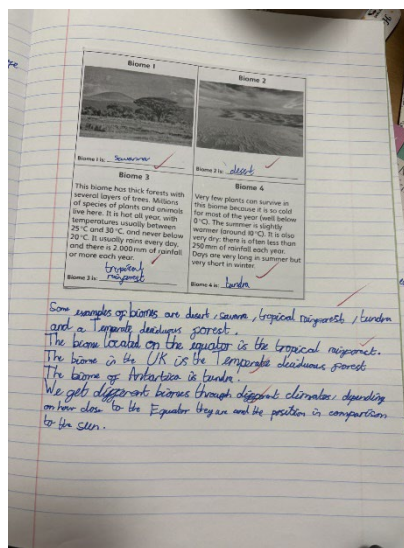 Biome 1
Biome 2
Biome 1 is: savanna
Biome 2 is: desert
Biome 3
This biome has thick forests with
several layers of trees. Millions
of species of plants and animals
live here. It is hot all year, with
temperatures usually between
25°C and 30°C, and never below
20°C. It usually rains every day,
and there is 2 000 mm of rainfall
or more each year.
Biome 3 is: tropical
rainforest
Biome 4
Very few plants can survive in
this biome because it is so cold
for most of the year (well below
0°C). The summer is slightly
warmer (around 10°C). It is also
very dry: there is often less than
250 mm of rainfall each year.
Days are very long in summer but
very short in winter.
Biome 4 is: tundra
Some examples of biomes are desert, savanna, tropical rainforest, tundra
and a Temperate deciduous forest.
The biome located on the equator is the tropical rainforest.
The biome in the UK is the Temperate deciduous forest
The biome of Antartica is tundra.
We get different biomes through different climates, depending
on how close to the Equator they are and the position in comparison
to the sun.